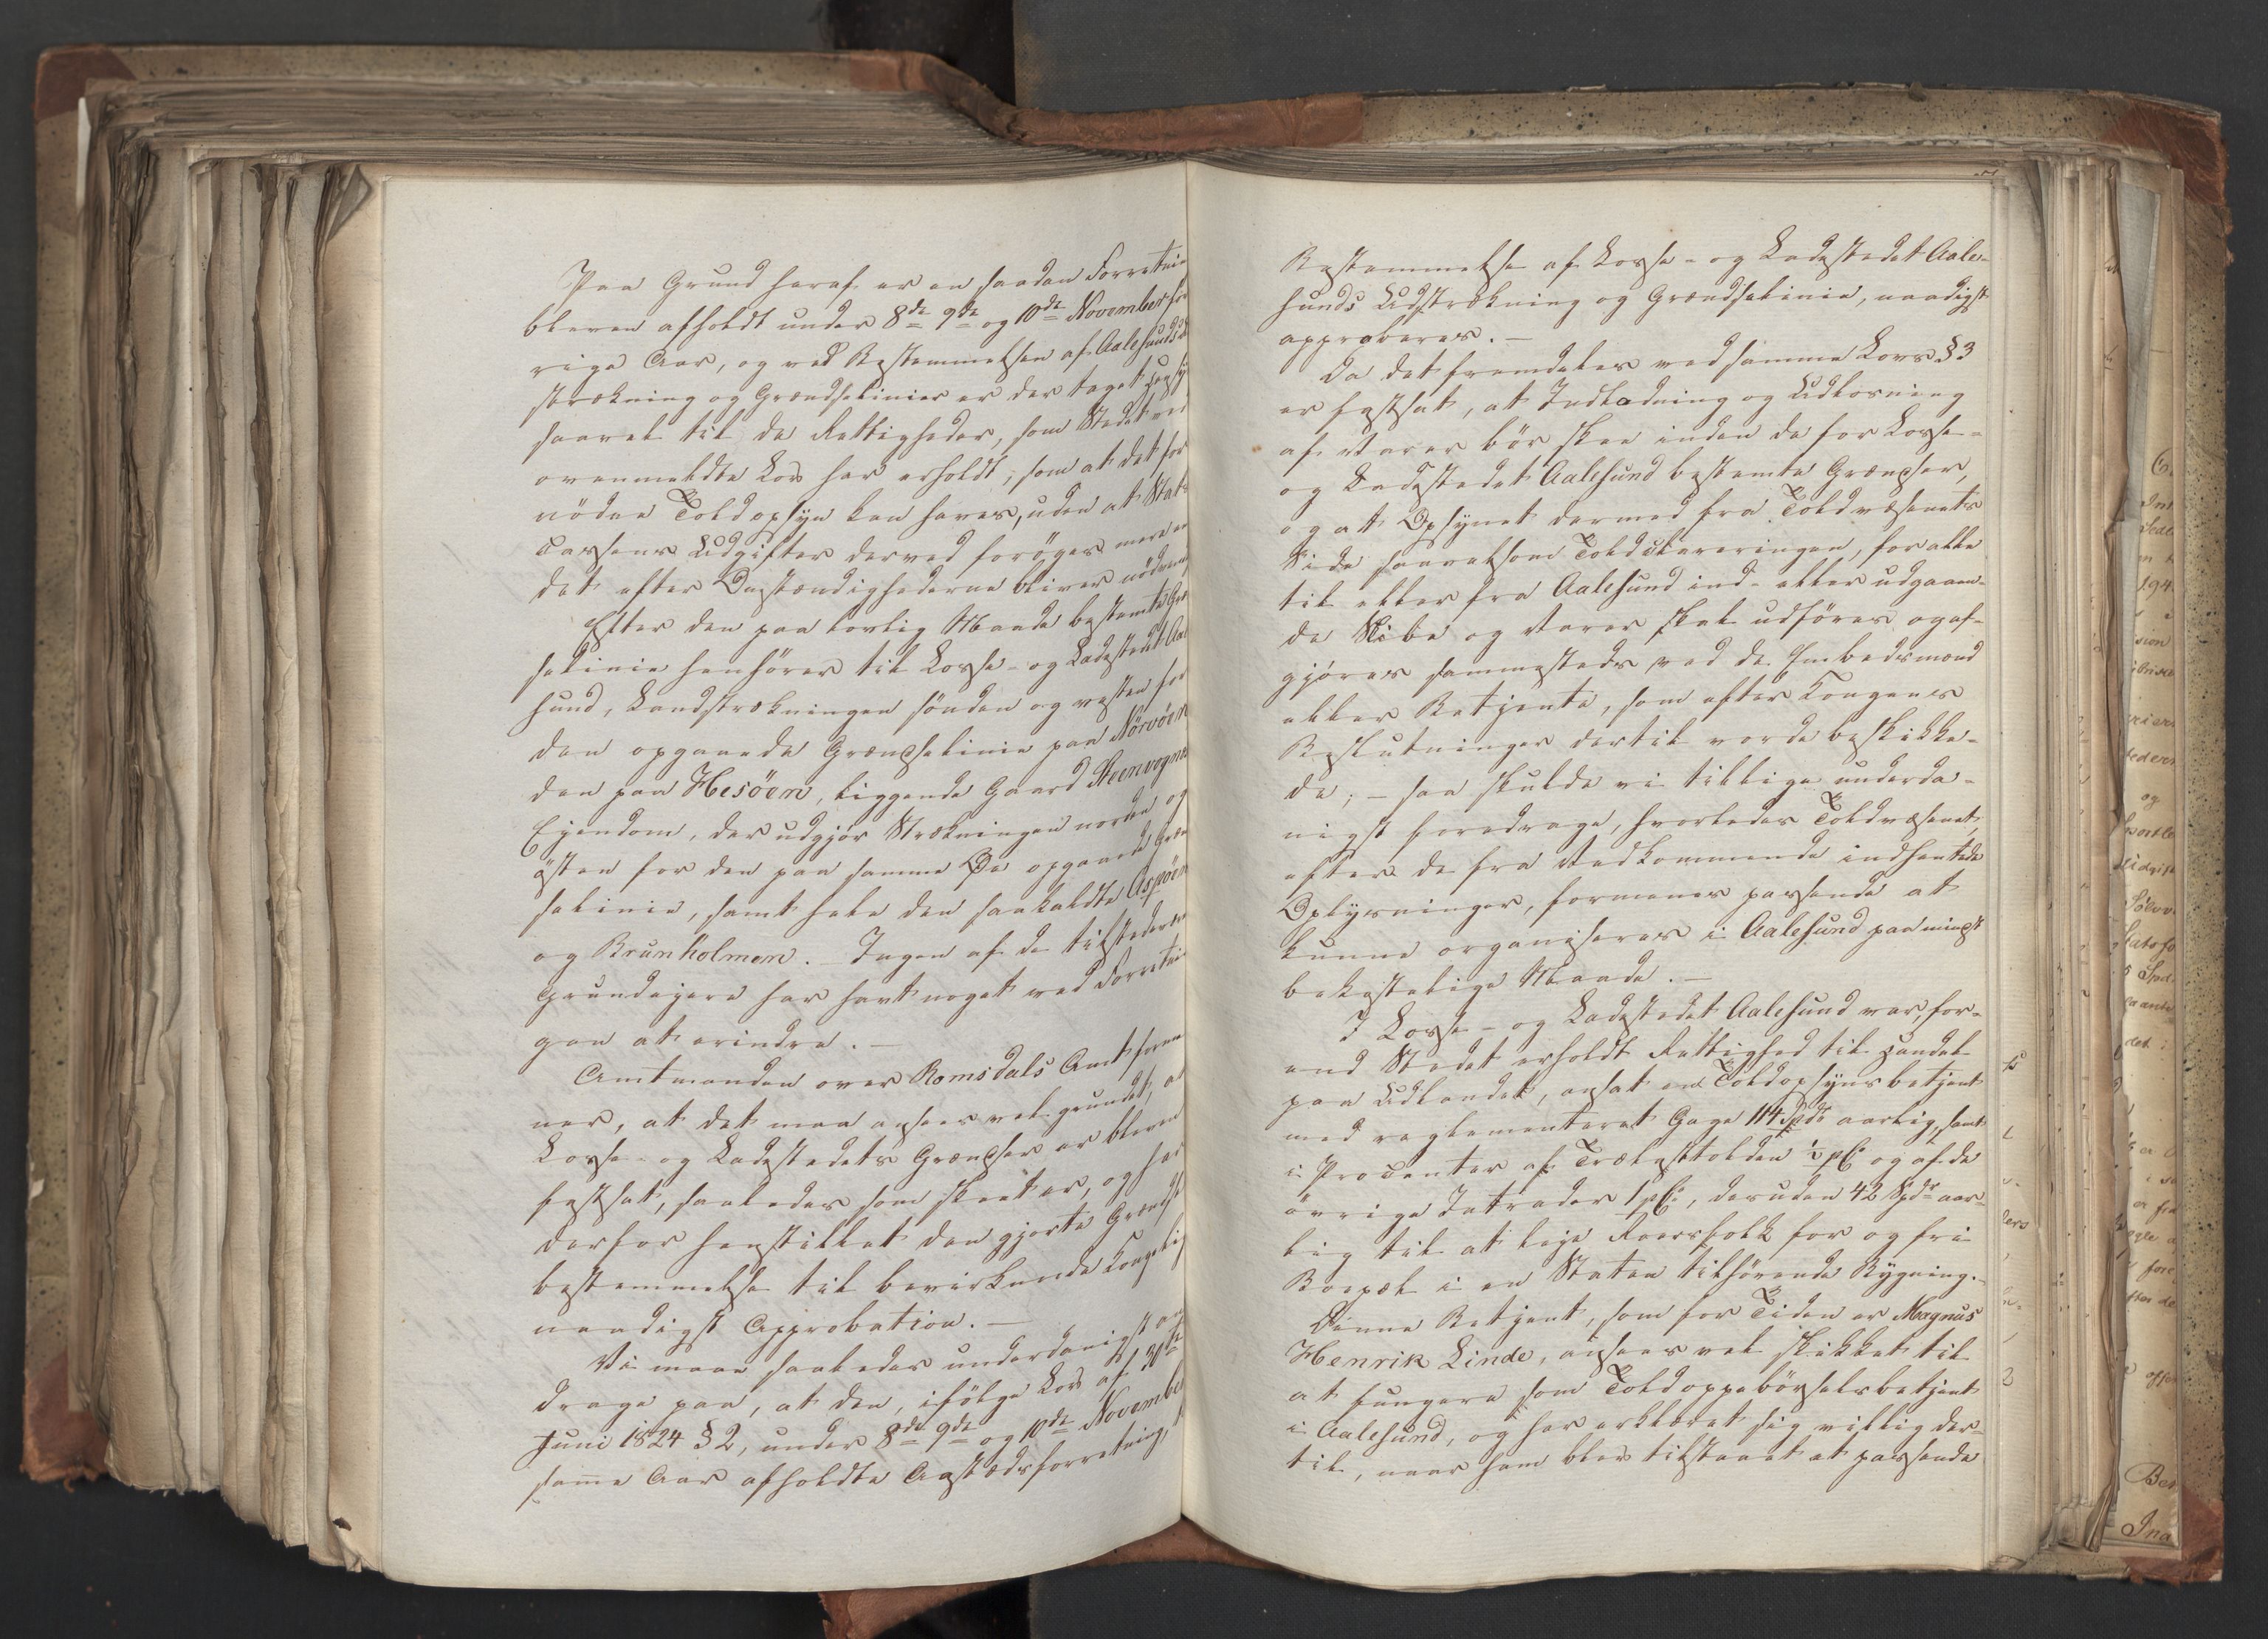 Paa Grund heraf er en saadan Forretnin
bleven afholdt under 8de 9de og 10de November for
rige Aar, og ved Bestemmelsen af Aalesunds Ud
strækning og Grændselinier er der taget Hensyn
saavel til de Rettigheder, som Stedet ved
ovenmeldte Lov har erholdt, som at det for
nødne Toldopsyn kan haves, uden at Stats
Cassens Udgifter derved forøges mere en
det efter Omstændighederne bliver nødvend
Efter den paa lovlig Maade bestemte Græn
selinie henhører til Losse- og Ladestedet Aale
sund, Landstrækningen sønden og vesten for
den opgaaede Grændselinie paa Nørvøen
den paa Hesøen, liggende Gaard Steenvogne
Ejendom, der udgjør Strækningen norden og
østen for den paa samme Øe opgaaede Græn
selinie, samt hele den saakaldte Aspøen
og Brunholmen. – Ingen af de tilstedevæ
Grundejere har havt noget ved Forretnin
gen at erindre. –
Amtmanden over Romsdals Amt forme
ner, at det maa ansees vel grundet, at
Losse- og Ladestedets Grændser er bleven
fastsat, saaledes som skeet er, og har
derfor henstillet den gjorte Grændse
bestemmelse til bevirkende Kongelig
naadigst Approbation. –
Vi maae saaledes underdanigst an
drage paa, at den, ifølge Lov af 30te
Juni 1824 § 2, under 8de 9de og 10de November
samme Aar afholdte Aastedsforretning,
Bestemmelse af Losse- og Ladestedet Aale-
sunds Udstrækning og Grændselinie, naadigst
approberes. –
Da det fremdeles ved samme Lovs § 3
er fastsat, at Indladning og Udlosning
af Varer bør skee inden de for Losse-
og Ladestedet Aalesund bestemte Grændser,
og at Opsynet dermed fra Toldvæsenets
Side saavelsom Toldklareringen, for alle
til eller fra Aalesund ind- eller udgaaen-
de Skibe og Varer skal udføres og af-
gjøres sammesteds ved de Embedsmænd
eller Betjente, som efter Kongens
Beslutninger dertil vorde beskikke-
de; – saa skulde vi tillige underda-
nigst foredrage, hvorledes Toldvæsenet,
efter de fra Vedkommende indhentede
Oplysninger, formenes passende at
kunne organiseres i Aalesund paa mindst
bekostelige Maade. –
I Losse- og Ladestedet Aalesund var, for-
end Stedet erholdt Rettighed til Handel
paa Udlandet, ansat en Toldopsynsbetjent
med reglementeret Gage 114 Spdr aarlig, samt
i Procenter af Trælasttolden ½ pC og af de
øvrige Intrader 1 pC, desuden 42 Spdr aar-
lig til at leje Roersfolk for og fri
Boepæl i en Staten tilhørende Bygning.
Denne Betjent, som for Tiden er Magnus
Henrik Linde, ansees vel skikket til
at fungere som Toldoppebørselsbetjent
i Aalesund, og har erklæret sig villig der-
til, naar ham blev tilstaaet et passende